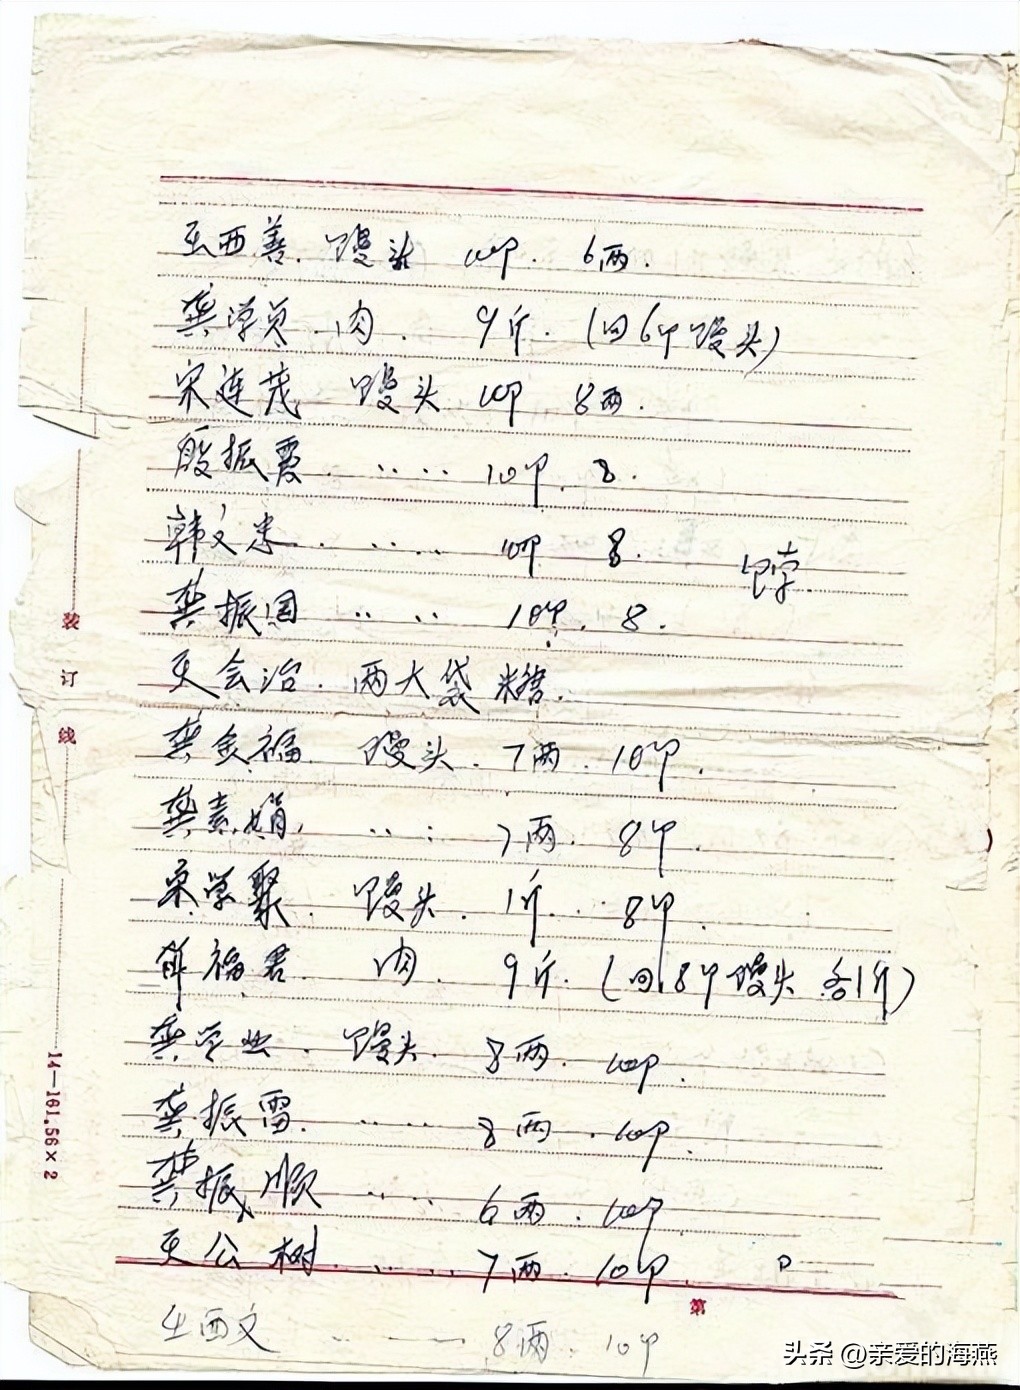 王西善. 馒头 10个. 6两.
龚学员 肉. 9斤. (回6个馒头)
宋连茂 馒头 10个 8两.
殷振霞. ‥‥ 10个. 8.
韩文忠. ‥‥ 10个 8.
饽
龚振国 ‥‥ 10个. 8.
王会治. 两大袋糖.
龚金福. 馒头. 7两. 10个.
龚素娟, ‥‥ 7两. 8个.
宋学聚. 馒头. 1斤. 8个.
薛福君. 肉. 9斤. (回8个馒头各1斤)
龚学业. 馒头. 8两. 10个.
龚振雷. ‥‥ 8两. 10个.
龚振顺 ‥‥ 6两. 10个
王公树. ‥‥ 7两. 10个.
西文 8两. 10个
装
订
线
14—101.56×2
第
头条 @亲爱的海燕